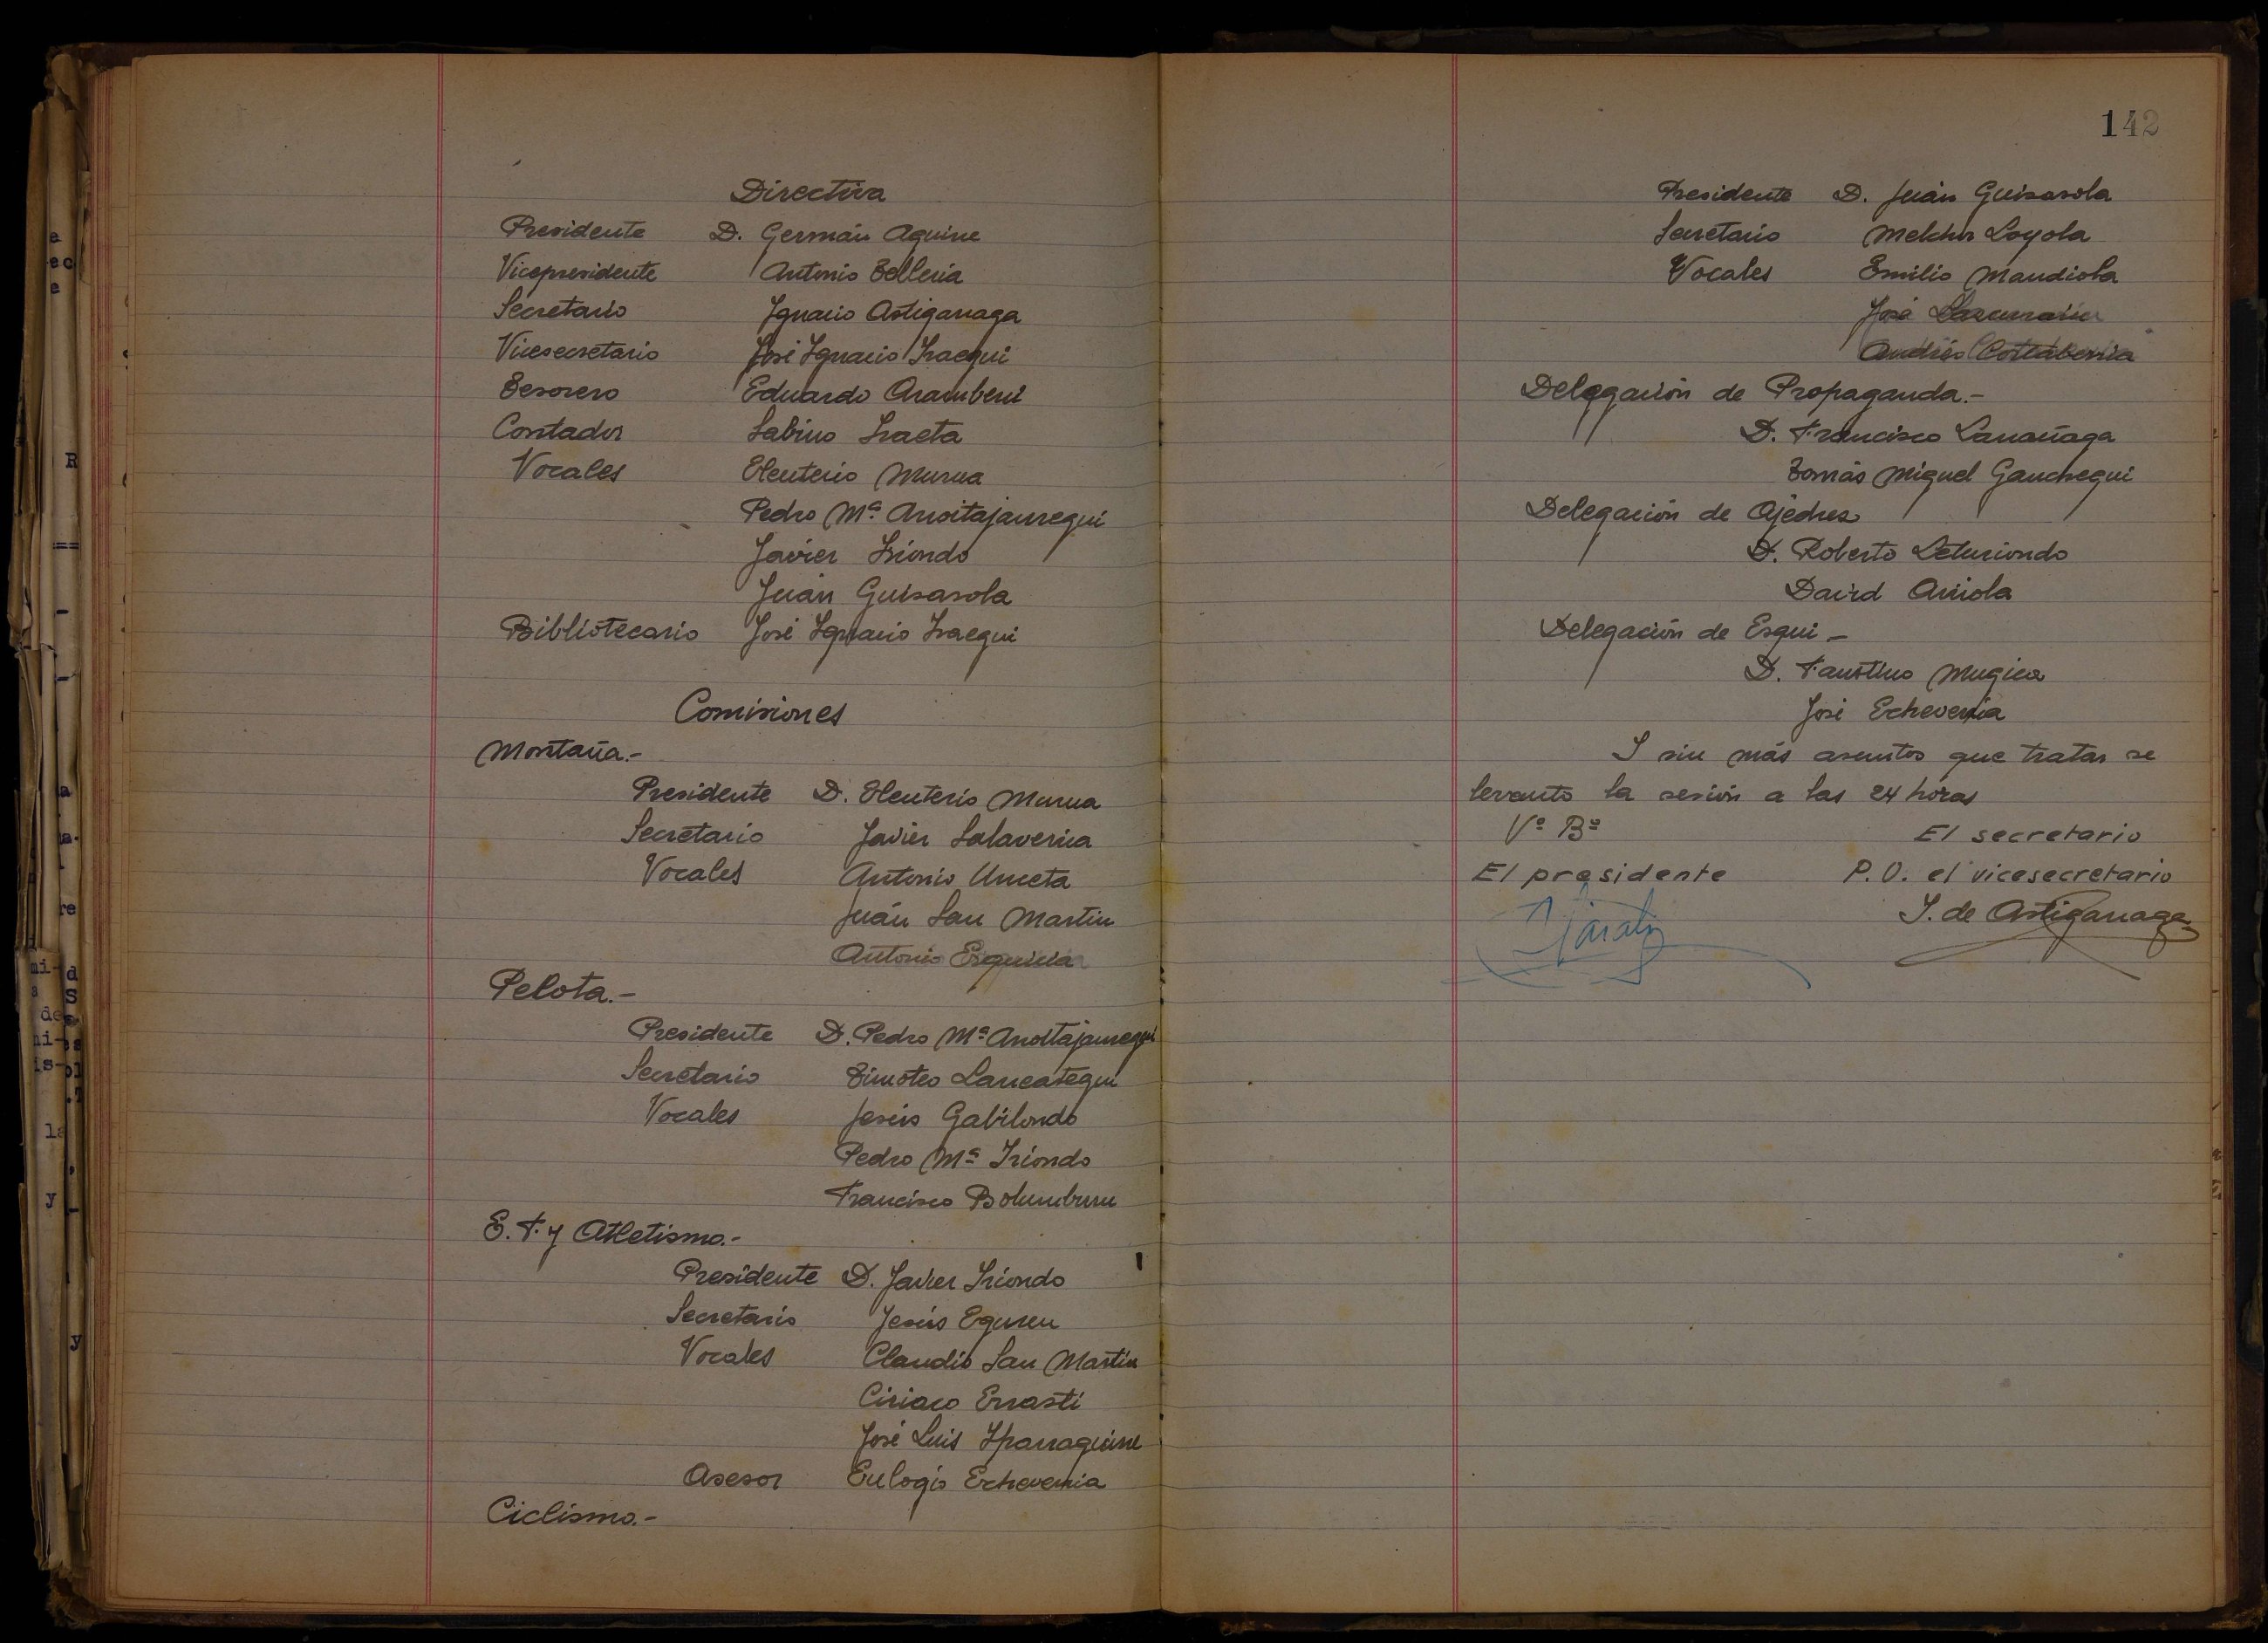 Directiva
Presidente D. Germán Aguirre
Vicepresidente Antonio Telleria
Secretario Ignacio Astigarraga
Vicesecretario José Ignacio Iraegui
Tesorero Eduardo Aramberri
Contador Sabino Iraeta
Vocales Eleuterio Murua
Pedro Mª Anoitajauregui
Javier Iriondo
Juán Guisasola
Bibliotecario José Ignacio Iraegui
Comisiones
Montaña.-
Presidente D. Eleuterio Murua
Secretario Javier Salaverria
Vocales Antonio Unceta
Juán San Martin
Antonio
Pelota.-
Presidente D. Pedro Mª Anoitajauregui
Secretario Timoteo Lancategui
Vocales Jesús Gabilondo
Pedro Mª Iriondo
Francisco Bolumburu
E. F. y Atletismo.-
Presidente D. Javier Iriondo
Secretario Jesús Eguren
Vocales Claudio San Martin
Ciriaco Errasti
José Luis Iparraguirre
Asesor Eulogio Echeverria
Ciclismo.-
142
Presidente D. Juán Guisasola
Secretario Melchor Loyola
Vocales Emilio Mandiola
José
Andrés
Delegación de Propaganda.-
D. Francisco Larrañaga
Tomás Miguel Ganchegui
Delegación de Ajedrez
D. Roberto Leturiondo
David Arriola
Delegación de Esqui -
D. Faustino Mugica
José Echeverria
I sin más asuntos que tratar se
levanto la sesión a las 24 horas
Vº Bº El secretario
El presidente P.O. el vicesecretario
I. de Astigarraga